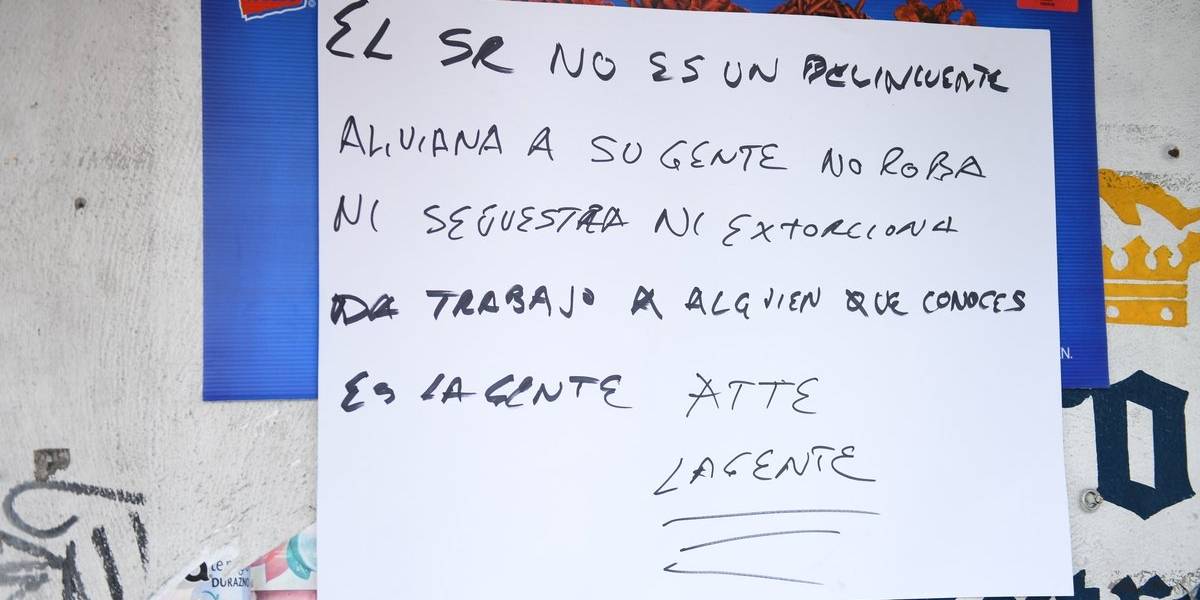 EL SR NO ES UN DELINCUENTE
ALIVIANA A SU GENTE NO ROBA
NI SECUESTRA NI EXTORCIONA
DA TRABAJO A ALGUIEN QUE CONOCES
ES LA GENTE ATTE
LA GENTE
N.
DURAZNO